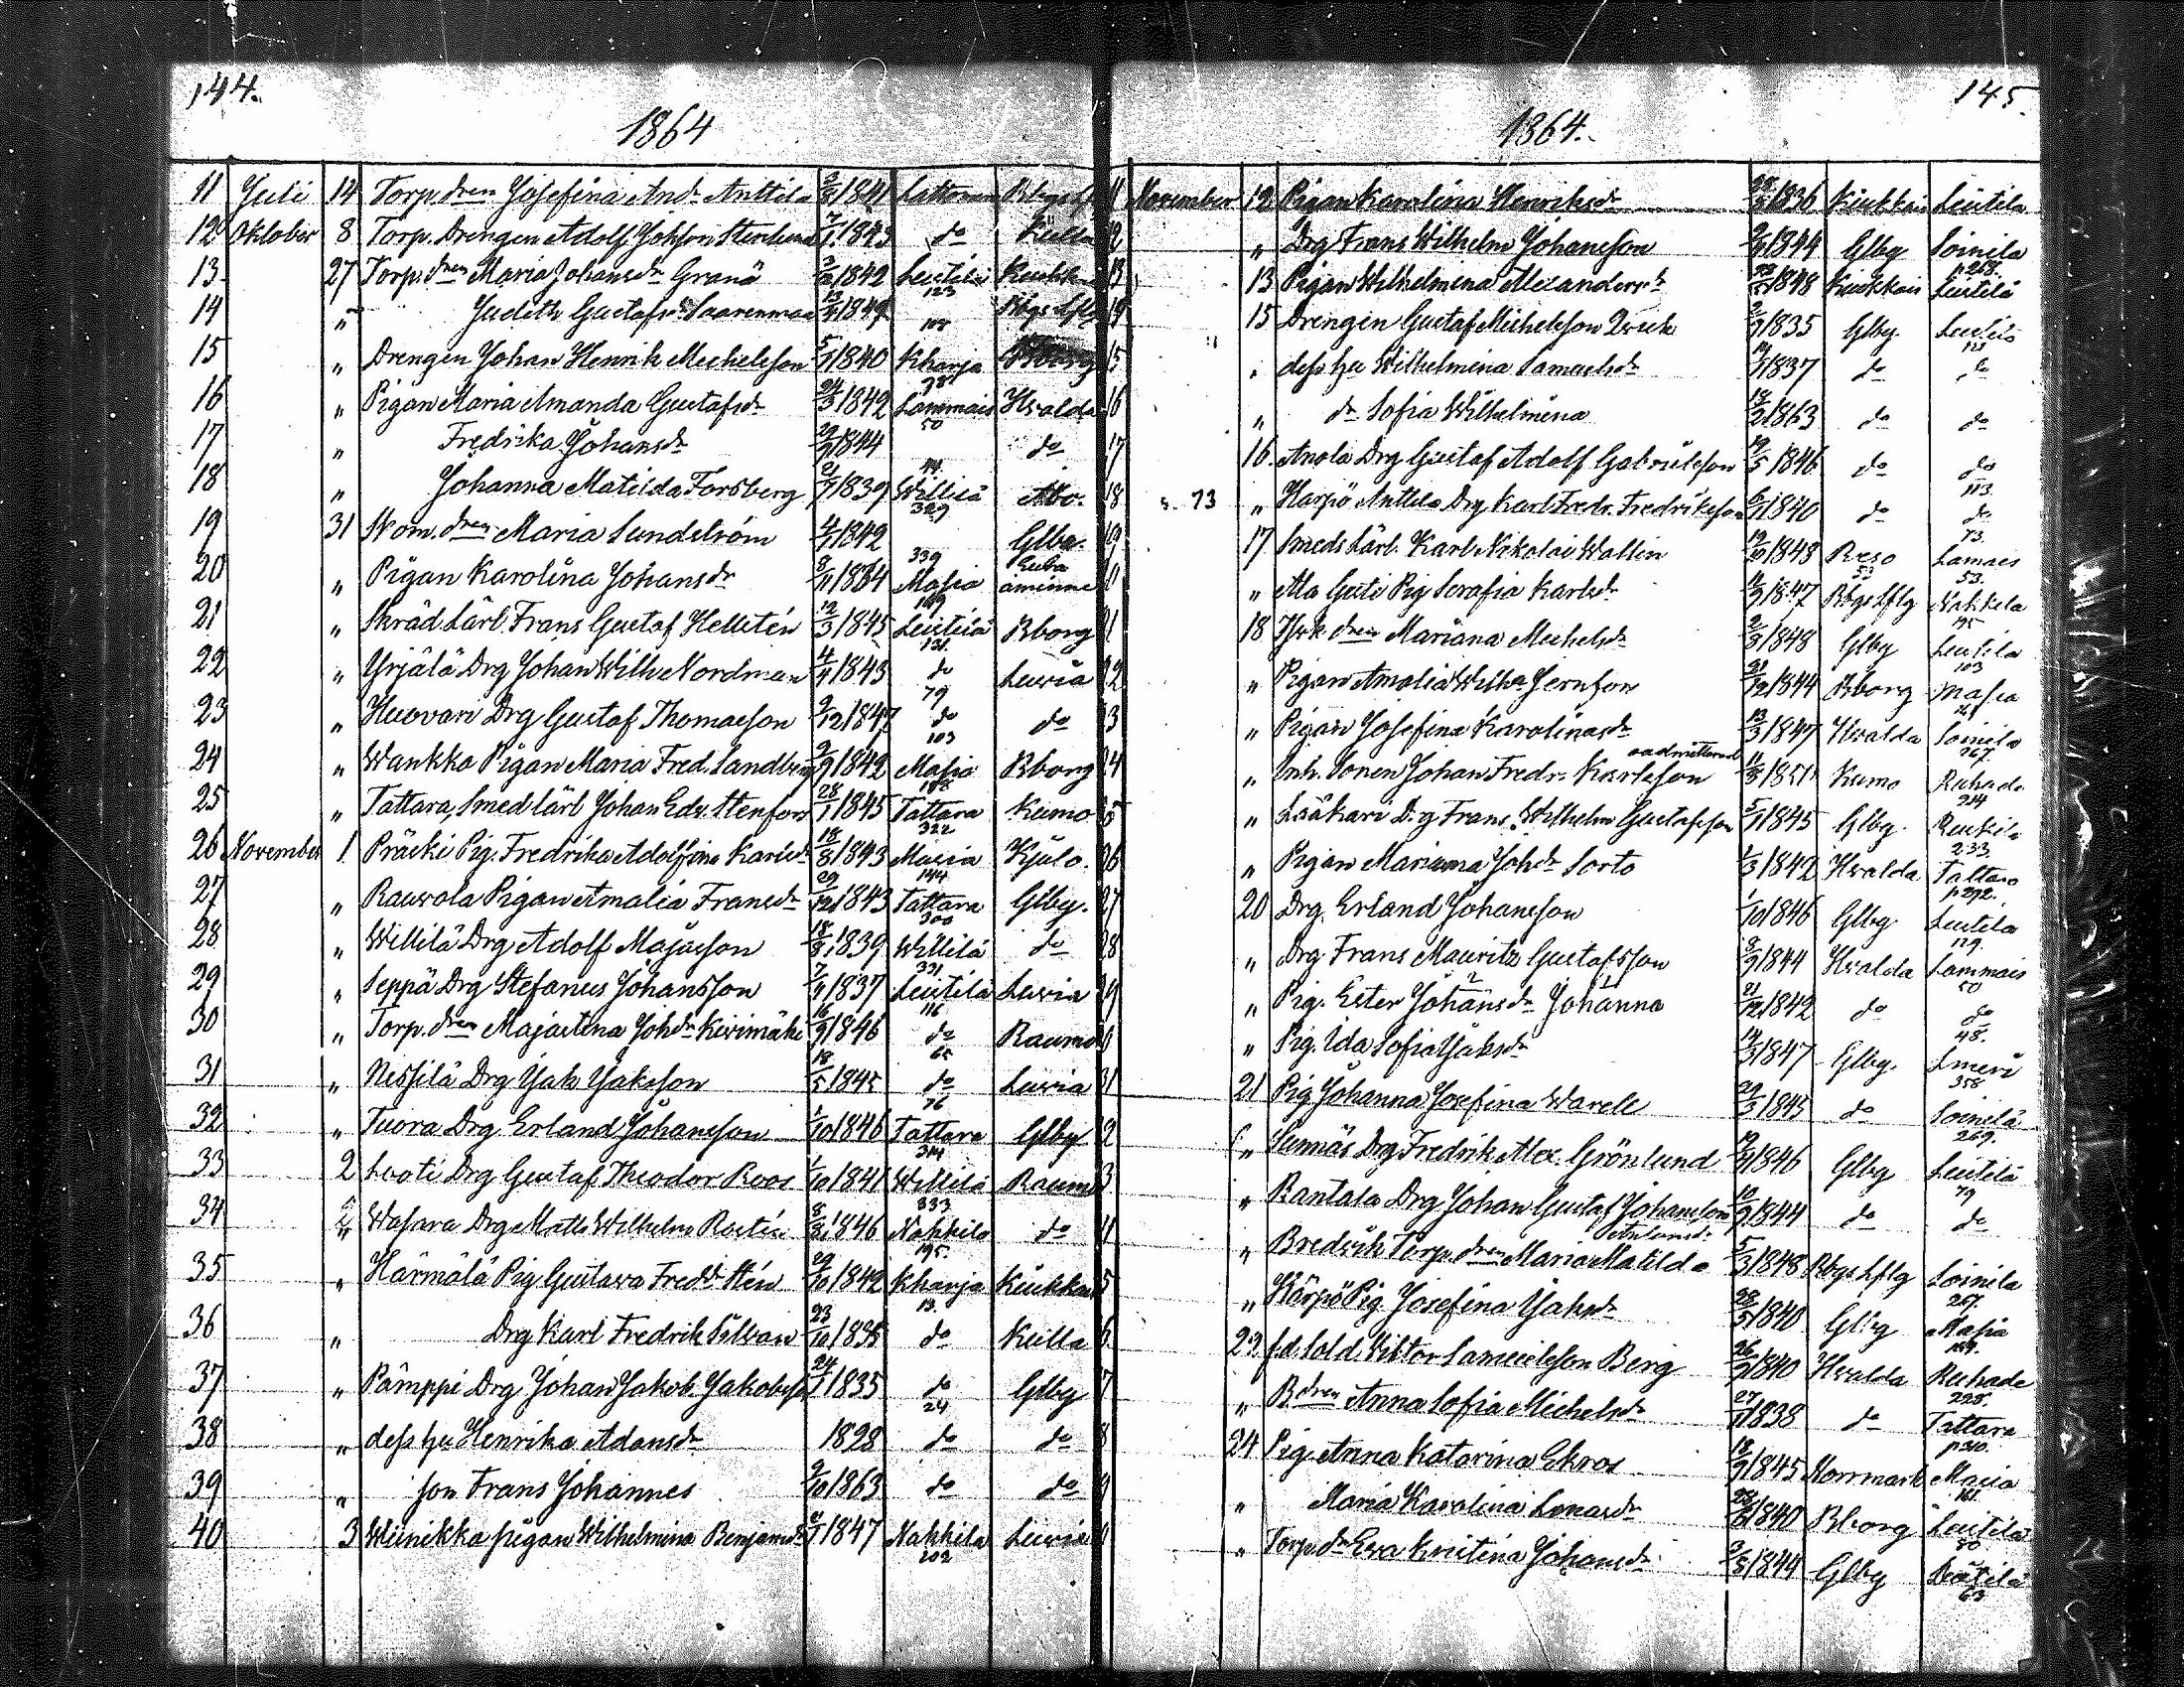 144.
1864
11 Juli 14 Torp. dren Josefina And. Anttila 1841 Lattomeri
12 Oktober 8 Torp. Drengen Adolf Johsson 1843 do Kulla
13 27 Torp. dren Maria Johansdr Granä 1842 Leistilä
123
14 " Judith Gustafsdr Saarenmaa 18
15 " Drengen Johan Henrik Michelsson 5/1 1840 Kharja
78
16 " Pigan Maria Amanda Gustafsdr 24/3 1842 Lammais Hvalda
50
17 " Fredrika Johansdr 29/9 1844 do
44.
18 " Johanna Matilda Forsberg 1839 Willilä Åbo.
329
19 31 Nom. dren Maria Sundström 1842 Glby.
339
20 " Pigan Karolina Johansdr 8/11 18 Masia Eura åminne
169
21 " Skräd Lärl. Frans Gustaf Hellstén 12/3 1845 Leistilä Bborg
131.
22 " Yrjälä Drg Johan Wilh Nordman 1843 do Luvia
79
23 " Huovari Drg Gustaf Thomasson 9/12 1847 do do
103
24 " Wankka Pigan Maria Fred. Sandberg 1842 Masia Bborg
188
25 " Tattara, Smed lärl Johan Edv. Stenfors 28/1 1845 Tattara Kumo
322
26 November 1 Präski Pig. Fredrika Adolfina Karlsdr 18/8 1843 Masia Kjulo.
144
27 " Rauvola Pigan Amalia Fransdr 29/12 1843 Tattara Glby.
300
28 " Willilä Drg Adolf Majasson 18/8 1839 Willilä do
331
29 " Seppä Drg Stefanus Johansson 1837 Leistilä Luvia
116
30 " Torp. dren Majastina Johdr Kivimäki 16/9 1846 do Raumo
65
31 " Nissilä Drg Jak Jaksson 18/5 1845 do Luvia
76
32 " Tuora Drg Erland Johansson 1/10 1846 Tattara Glby
314
33 2 Looti Drg Gustaf Theodor Roos 1/10 1841 Willilä Raumo
333
34 " Wasara Drg Matts Wilhelm Rostén 8/8 1846 Nakkila do
195.
35 " Härmälä Pig Gustava Freddr Stén 29/10 1842 Kharja Kiukkais
13.
36 " Drg Karl Fredrik Silvan 23/10 18 do Kulla
37 " Pämppi Drg Johan Jakob Jakobsson 24/1 1835 do Glby
24
38 " dess hu Henrika Adamsdr 1828 do do
39 " son Frans Johannes 9/10 1863 do do
40 3 Wiinikka pigan Wilhelmina Benjamsdr 1847 Nakkila Luvia
202
145
1864.
11 November 12 Pigan Karolina Henriksdr 1836 Kiukkais Leistilä
12 " Drg Frans Wilhelm Johansson 1844 Glby Soinila
p 268.
13 13 Pigan Wilhelmina Alexandersdr 1848 Kiukkais Leistilä
14 15 Drengen Gustaf Michelsson 1835 Glby. Leistilä
15 " dess hu Wilhelmina Samuelsdr 1837 do do
16 " dr Sofia Wilhelmina 13/2 1863 do do
17 16. Anola Drg Gustaf Adolf Gabrielsson 19/5 1846 do do
113.
18 s. 73 " Harpö Anttila Drg Karl Fredr. Fredriksson 1840 do do
73.
19 17 Smeds Lärl. Karl Nikolai Wallin 12/10 1848 Reso Lamais
53 53.
20 " Ala Gusti Pig Serafia Karlsdr 1847 Bbgs Lflg Nakkila
195
21 18 dren Mariana Michelsdr 2/3 1848 Glby Leistilä
103
22 " Pigan Amalia Wilh. Jernfors 21/12 1844 Bborg Masia
23 " Pigan Josefina Karolinasdr 13/3 1847 Hvalda Soinila
267.
24 " Inh. Sonen Johan Fredr. Karlsson 1851 Kumo Ruhade
214
25 " Lääkäri Drg Frans Wilhelm Gustafsson 1845 Glby.
233
26 " Pigan Mariana Johdr Sorto 1/3 1842 Hvalda Tattara
p 292.
27 20 Drg. Erland Johansson 1/10 1846 Glby. Leistilä
129.
28 " Drg. Frans Mauritz Gustafsson 8/9 1844 Hvalda Lammais
50
2 1
29 " Pig. Ester Johansdr Johanna 21/12 1842 do do
48.
30 " Pig. Ida Sofia Jaksdr 14/3 1847 Glby.
358
31 21 Pig Johanna Josefina Warell 29/3 1845 do Soinilä
269.
32 " Sunnäs Drg Fredrik Alex. Grönlund 19/9 1846 Glby Leistilä
79
33 " Rantala Drg Johan Gustaf Johansson 10/9 1844 do do
34 " Torp. dren Maria Matilda 5/3 1848 Bbgs Lflg Soinila
267.
35 " Härpö Pig Josefina Jaksdr 28/3 1840 Glby Masia
36 22 f.d. Sold. Viktor Samuelsson Berg 26/9 1840 Hvalda Ruhade
228.
37 " Bdren Anna Sofia Michelsdr 27/11 1838 do Tattara
p 310.
38 24 Pig. Anna Katarina Ekros 18/9 1845 Norrmark Masia
161.
39 " Maria Karolina 1840 Bborg Leistilä
80
40 " Torp. dr Eva Kristina Johansdr 1844 Glby Leistilä
63